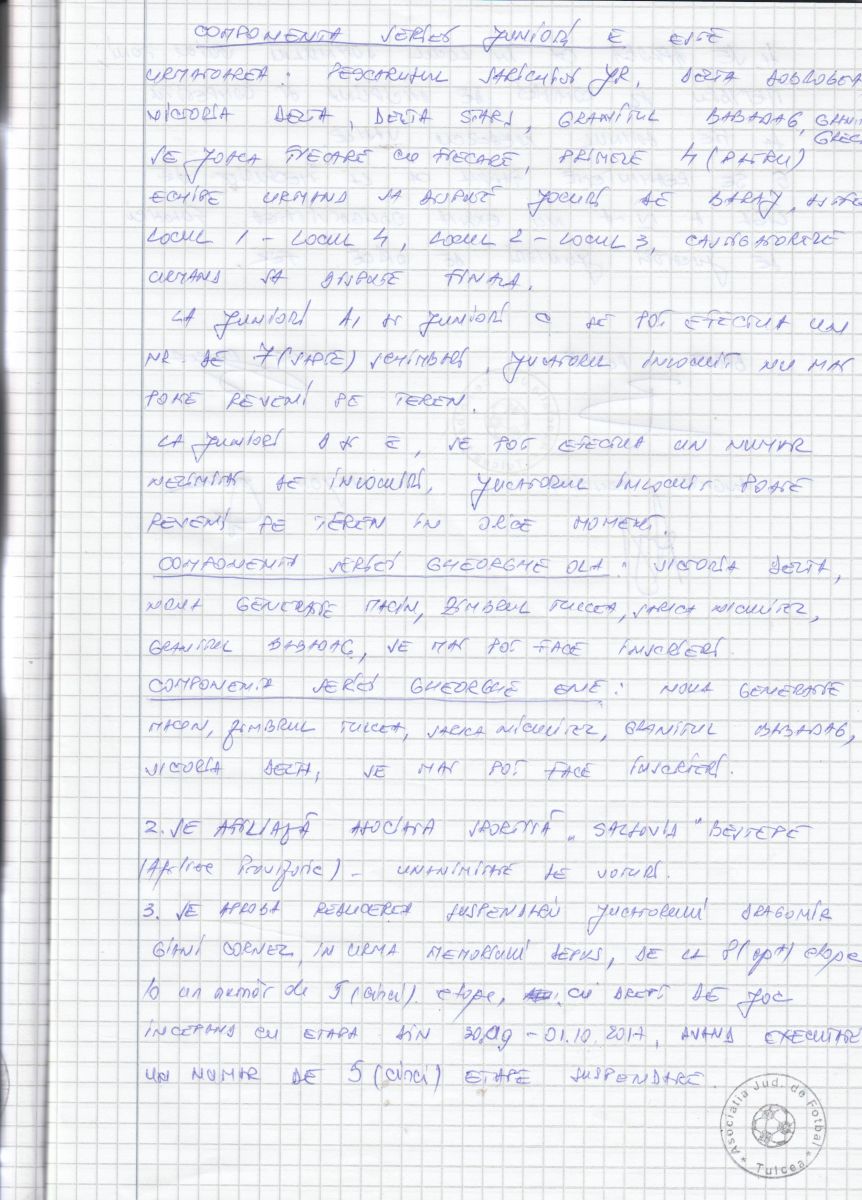 COMPONENTA SERIEI JUNIORI E ESTE
URMATOAREA: PESCARUSUL SARICHIOI JR, DELTA DOBROGEA
VICTORIA DELTA, DELTA STARS, GRANITUL BABADAG, GRANIT
GREC
SE JOACA FIECARE CU FIECARE, PRIMELE 4 (PATRU)
ECHIPE URMAND SA DISPUTE JOCURI DE BARAJ, ASTFEL
LOCUL 1 - LOCUL 4, LOCUL 2 - LOCUL 3, CASTIGATORELE
URMAND SA DISPUTE FINALA.
LA JUNIORI A1 SI JUNIORI C SE POT EFECTUA UN
NR. DE 7 (SAPTE) SCHIMBARI, JUCATORUL INLOCUIT NU MAI
POATE REVENI PE TEREN.
LA JUNIORI D SI E, SE POT EFECTUA UN NUMAR
NELIMITAT DE INLOCUIRI, JUCATORUL INLOCUIT POATE
REVENI PE TEREN IN ORICE MOMENT.
COMPONENTA SERIEI GHEORGHE OLA: VICTORIA DELTA,
NOUA GENERATIE MACIN, ZIMBRUL TULCEA, SARICA NICULITEL,
GRANITUL BABADAG, SE MAI POT FACE INSCRIERI.
COMPONENTA SERIEI GHEORGHE ENE: NOUA GENERATIE
MACIN, ZIMBRUL TULCEA, SARICA NICULITEL, GRANITUL BABADAG,
VICTORIA DELTA, SE MAI POT FACE INSCRIERI.
2. SE AFILIAZĂ ASOCIATIA SPORTIVĂ „SALSOVIA" BESTEPE
(Afiliere Provizorie) - UNANIMITATE DE VOTURI.
3. SE APROBA REDUCEREA SUSPENDARII JUCATORULUI DRAGOMIR
GIANI CORNEL, IN URMA MEMORIULUI DEPUS, DE LA 8 (opt) etape
la un numar de 5 (cinci) etape, CU DREPT DE JOC
INCEPAND CU ETAPA DIN 30.09 - 01.10.2017, AVAND EXECUTATE
UN NUMAR DE 5 (cinci) ETAPE SUSPENDARE.
Asociatia Jud. de Fotbal
* Tulcea *